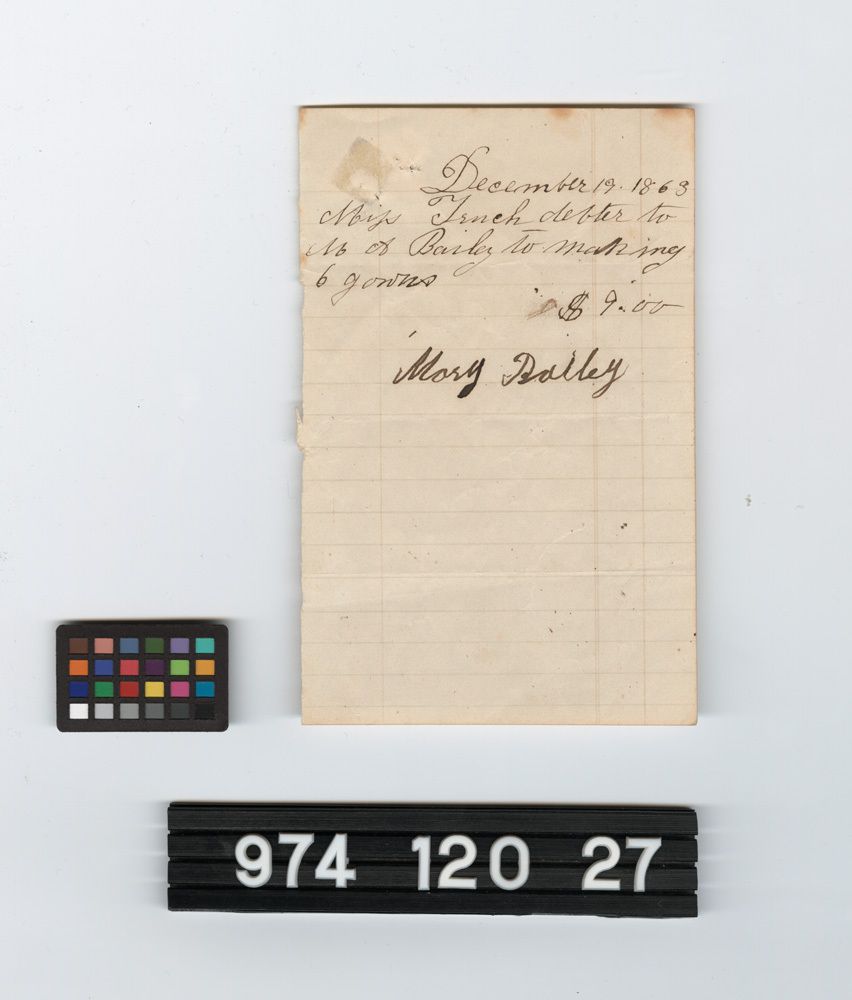 December 19. 1863
Miss Trench debter to
M A Bailey to making
6 gowns
$ 9.00
Mary Bailey
974 120 27